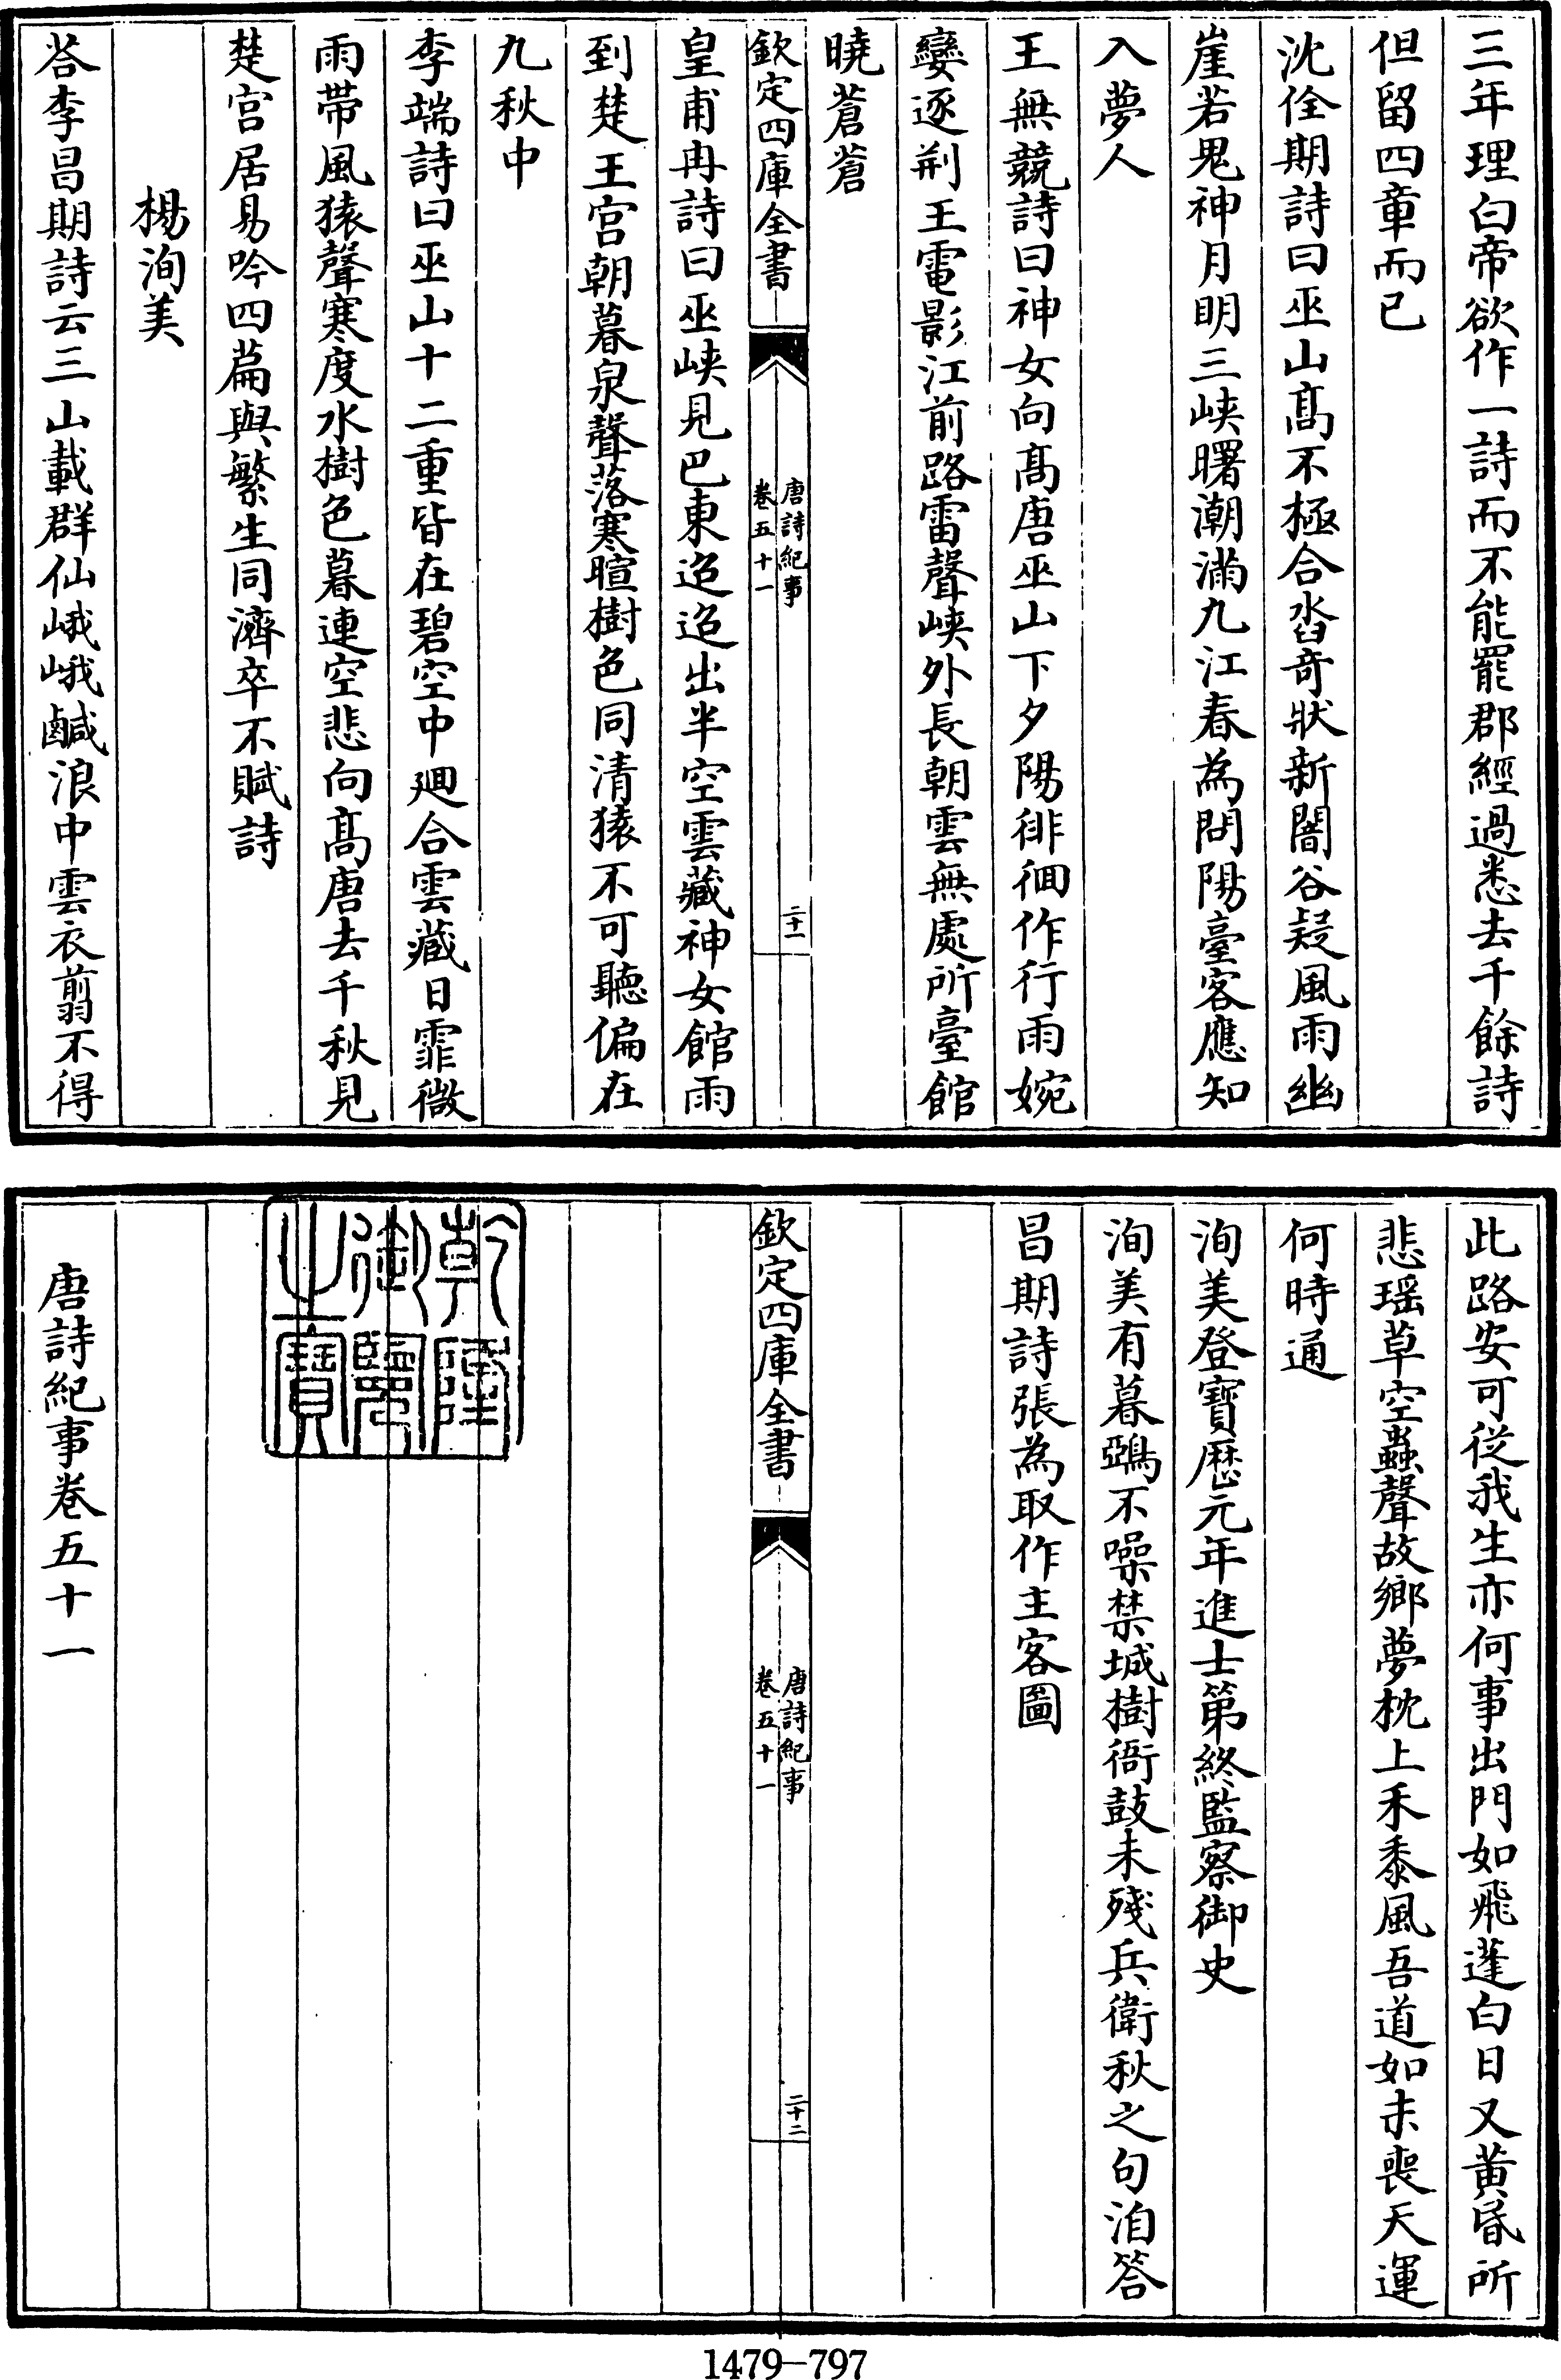 三年理白帝欲作一詩而不能罷郡經過悉去千餘詩
但留四章而已
沈佺期詩曰巫山髙不極合沓竒狀新闇谷疑風雨幽
崖若鬼神月明三峽曙潮滿九江春為問陽臺客應知
入夢人
王無競詩曰神女向髙唐巫山下夕陽徘徊作行雨婉
孌逐荆王電影江前路雷聲峽外長朝雲無處所臺館
曉蒼蒼
欽定四庫全書
唐詩紀事
卷五十一
二十一
皇甫冉詩曰巫峽見巴東迢迢出半空雲藏神女館雨
到楚王宫朝暮泉聲落寒暄樹色同清猿不可聽偏在
九秋中
李端詩曰巫山十二重皆在碧空中廻合雲藏日霏微
雨帶風猿聲寒度水樹色暮連空悲向髙唐去千秋見
楚宫居易吟四篇與繁生同濟卒不賦詩
楊洵美
答李昌期詩云三山載群仙峨峨鹹浪中雲衣翦不得
此路安可從我生亦何事出門如飛蓬白日又黄昏所
悲瑶草空蟲聲故鄉夢枕上禾黍風吾道如未喪天運
何時通
洵美登寶歴元年進士第終監察御史
洵美有暮鵶不噪禁城樹衙鼓未殘兵衛秋之句洎答
昌期詩張為取作主客圖
欽定四庫全書
唐詩紀事
卷五十一
二十二
乾隆御覽之寶
唐詩紀事卷五十一
1479-797